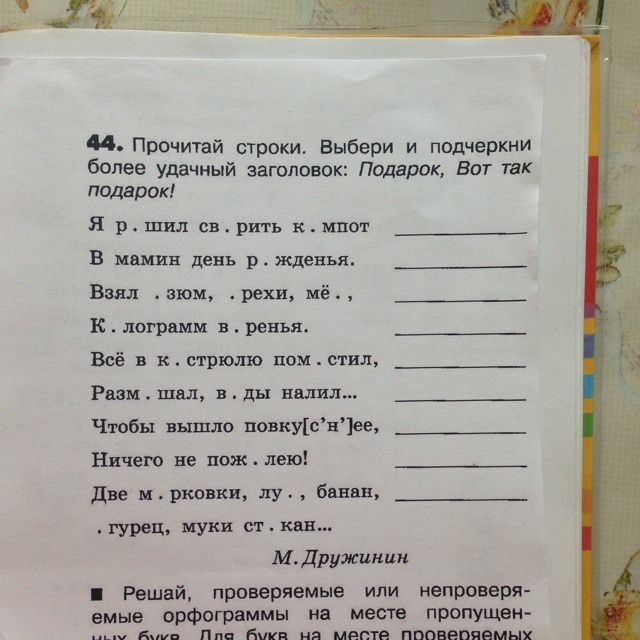 44. Прочитай строки. Выбери и подчеркни
более удачный заголовок: Подарок, Вот так
подарок!
Я р . шил св . рить к . мпот
В мамин день р . жденья.
Взял . зюм, . рехи, мё . ,
К . лограмм в . ренья.
Всё в к . стрюлю пом . стил,
Разм . шал, в . ды налил...
Чтобы вышло повку[с'н']ее,
Ничего не пож . лею!
Две м . рковки, лу . , банан,
. гурец, муки ст . кан...
М. Дружинин
■ Решай, проверяемые или непроверя-
емые орфограммы на месте пропущен-
ных букв. Для букв на месте проверяемых